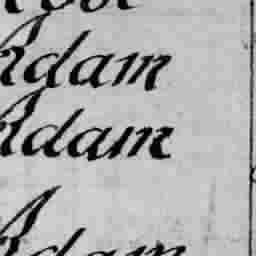 Adam
Adam
Adam